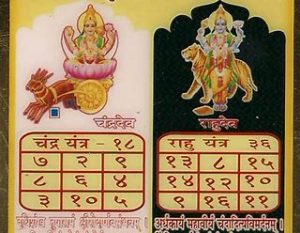 चंद्रदेव
चंद्र यंत्र - १८
७ २ ९
८ ६ ४
३ १० ५
राहुदेव
राहु यंत्र ३६
१३ ८ १५
१४ १२ १०
९ १६ ११
अर्धकायं महावीर्यं चंद्रादित्यविमर्दनम् |